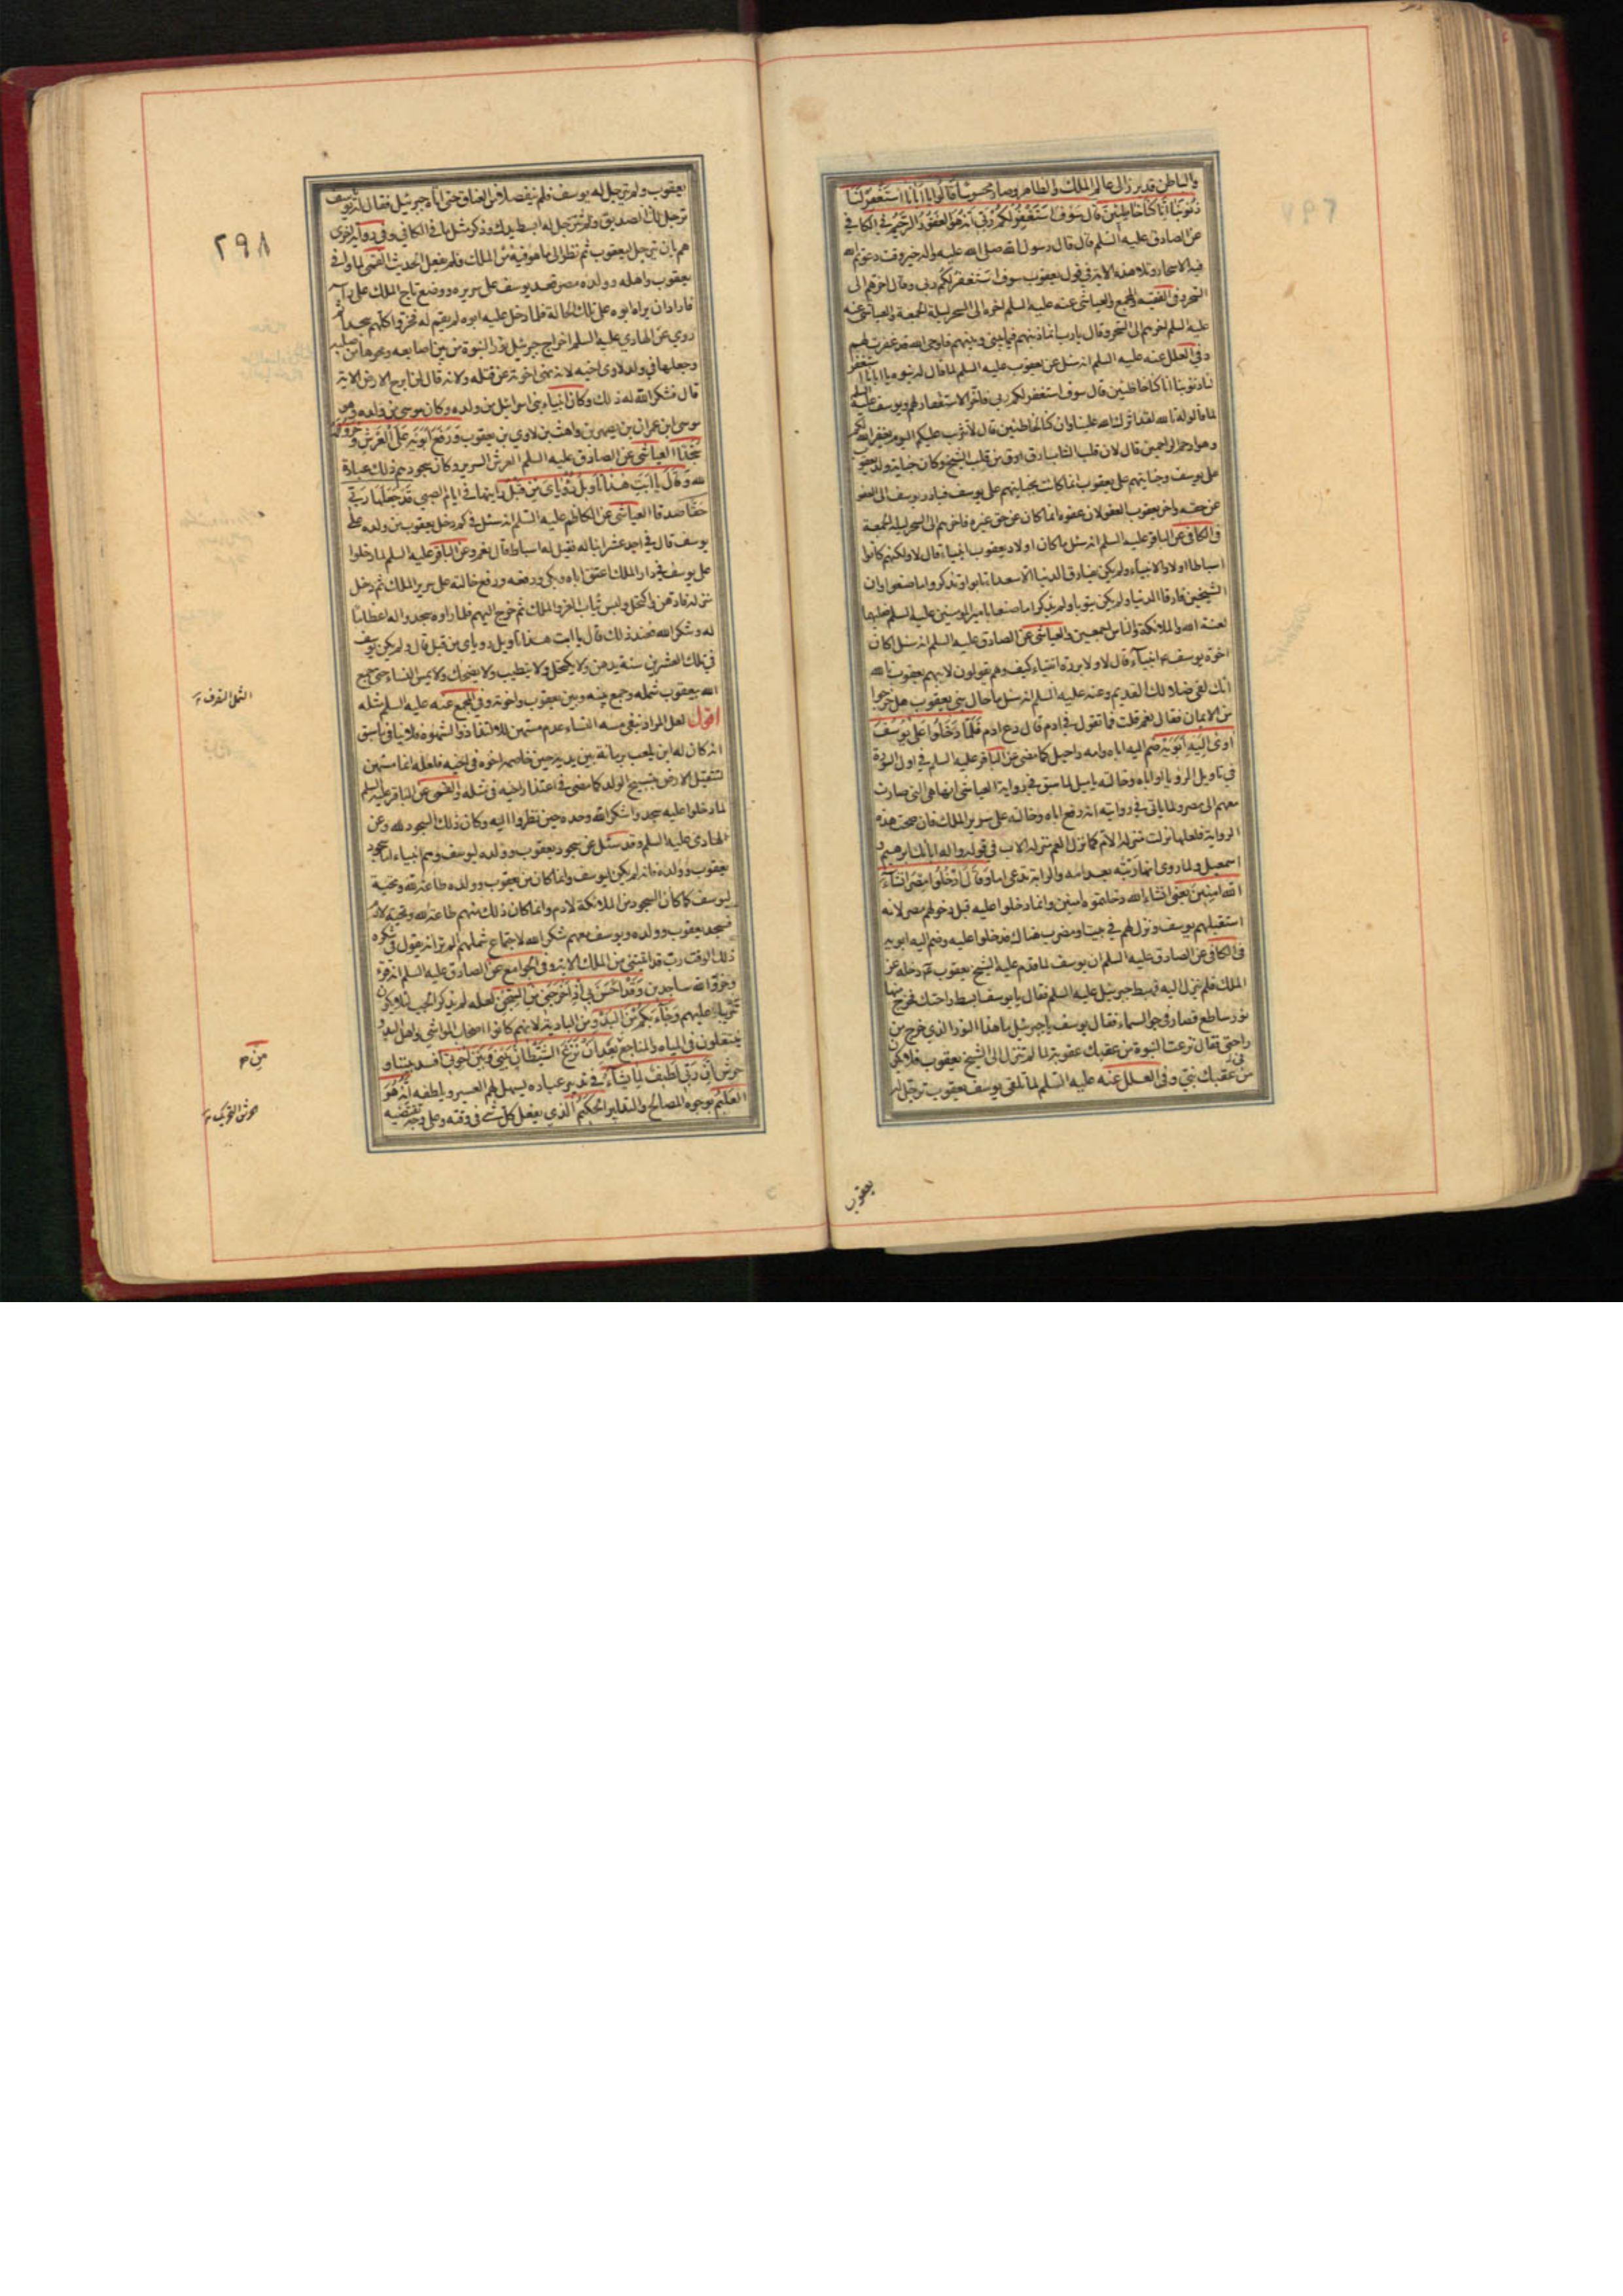 والباطن قد برز الى عالم الملك والظاهر وصار محسوسا قَالُوا يَا أَبَانَا اسْتَغْفِرْ لَنَا
ذُنُوبَنَا إِنَّا كُنَّا خَاطِئِينَ قَالَ سَوْفَ أَسْتَغْفِرُ لَكُمْ رَبِّي إِنَّهُ هُوَ الْغَفُورُ الرَّحِيمُ في الكافي
عن الصادق عليه السلم قال قال رسول الله صلى الله عليه واله خير وقت دعوتم الله
فيه الاسحار وتلا هذه الاية في قول يعقوب سوف استغفر لكم ربي وقال اخرهم الى
السحر وفي الفقيه والمجمع والعياشي عنه عليه السلم اخره الى السحر ليلة الجمعة والعياشي عنه
عليه السلم اخرهم الى السحر وقال يا رب انما ذنبهم فيما بيني وبينهم فاوحى الله قد غفرت لهم
وفي العلل عنه عليه السلم انه سئل عن يعقوب عليه السلم لما قال له بنوه يا ابانا استغفر
لنا ذنوبنا انا كنا خاطئين قال سوف استغفر لكم ربي فاخر الاستغفار لهم ويوسف عليه السلم
لما قالوا له تالله لقد اثرك الله علينا وان كنا لخاطئين قال لا تثريب عليكم اليوم يغفر الله لكم
وهو ارحم الراحمين قال لان قلب الشاب ارق من قلب الشيخ وكان جناية ولد يعقوب
على يوسف وجنايتهم على يعقوب انما كانت بجنايتهم على يوسف فبادر يوسف الى العفو
عن حقه واخر يعقوب العفو لان عفوه انما كان عن حق غيره فاخرهم الى السحر ليلة الجمعة
في الكافي عن الباقر عليه السلم انه سئل ما كان اولاد يعقوب انبياء قال لا ولكنهم كانوا
اسباطا اولاد الانبياء ولم يكن يفارق الدنيا الا سعداء تابوا وتذكروا ما صنعوا وان
الشيخين فارقا الدنيا ولم يكن يتوبا ولم يذكرا ما صنعا بامير المؤمنين عليه السلم فعليهما
لعنة الله والملائكة والناس اجمعين والعياشي عن الصادق عليه السلم انه سئل كان
اخوة يوسف انبياء قال لا ولا بررة اتقياء كيف وهم يقولون لابيهم يعقوب تالله
انك لفي ضلالك القديم وعنه عليه السلم انه سئل ما حال بني يعقوب هل خرجوا
من الايمان فقال نعم قلت فما تقول في ادم قال دع ادم فَلَمَّا دَخَلُوا عَلَى يُوسُفَ
آوَى إِلَيْهِ أَبَوَيْهِ ضم اليه اباه وامه راحيل كما مضى عن الباقر عليه السلم في اول السورة
في تاويل الرؤيا او اباه وخالته ياميل لما سبق في رواية العياشي انها هي التي صارت
معهم الى مصر ولما ياتي في روايته انه رفع اباه وخالته على سرير الملك فان صحت هذه
الرواية فلعلها نزلت منزلة الام كما نزل العم منزلة الاب في قوله واله ابائك ابرهيم و
اسمعيل ولما روي انها ربته بعد امه والرابة تدعى اما وَقَالَ ادْخُلُوا مِصْرَ إِنْ شَاءَ
اللَّهُ آمِنِينَ يعني ان شاء الله دخلتموه امنين وانما دخلوا عليه قبل دخولهم مصر لانه
استقبلهم يوسف ونزل لهم في بيت او مضرب هناك فدخلوا عليه وضم اليه ابويه
في الكافي عن الصادق عليه السلم ان يوسف لما قدم عليه الشيخ يعقوب دخله عز
الملك فلم ينزل اليه فهبط جبرئيل عليه السلم فقال يا يوسف ابسط راحتك فخرج منها
نور ساطع فصار في جو السماء فقال يوسف يا جبرئيل ما هذا النور الذي خرج من
راحتي فقال نزعت النبوة من عقبك عقوبة لما لم تنزل الى الشيخ يعقوب فلا يكون
من عقبك نبي وفي العلل عنه عليه السلم لما تلقى يوسف يعقوب ترجل له
يعقوب
٢٩٨
يعقوب ولم يترجل له يوسف فلم ينفصلا من العناق حتى اتاه جبرئيل فقال له يا يوسف
ترجل لك الصديق ولم تترجل له ابسط يدك وذكر مثل ما في الكافي وفي رواية اخرى
هم بان يترجل ليعقوب ثم نظر الى ما هو فيه من الملك فلم يفعل الحديث القمي لما وافى
يعقوب واهله وولده مصر قعد يوسف على سريره ووضع تاج الملك على راسه
فاراد ان يراه ابوه على تلك الحالة فلما دخل عليه ابوه لم يقم له فخروا كلهم سجدا ثم
روي عن الهادي عليه السلم اخراج جبرئيل نور النبوة من بين اصابعه ومحوها من صلبه
وجعلها في ولد لاوي اخيه لانه نهى اخوته عن قتله ولانه قال لن ابرح الارض الاية
قال فشكر الله له ذلك وكان انبياء بني اسرائيل من ولده وكان موسى من ولده وهو
موسى ابن عمران بن يصهر بن واهث بن لاوي بن يعقوب وَرَفَعَ أَبَوَيْهِ عَلَى الْعَرْشِ وَخَرُّوا لَهُ
سُجَّدًا العياشي عن الصادق عليه السلم العرش السرير وكان سجودهم ذلك عبادة
لله وَقَالَ يَا أَبَتِ هَذَا تَأْوِيلُ رُؤْيَايَ مِنْ قَبْلُ رايتها في ايام الصبى قَدْ جَعَلَهَا رَبِّي
حَقًّا صدقا العياشي عن الكاظم عليه السلم انه سئل في كم دخل يعقوب من ولده على
يوسف قال في احد عشر ابنا له فقيل له اسباط قال نعم وعن الباقر عليه السلم لما دخلوا
على يوسف في دار الملك اعتنق اباه وبكى ورفعه ورفع خالته على سرير الملك ثم دخل
منزله فادهن واكتحل ولبس ثياب العز والملك ثم خرج اليهم فلما راوه سجدوا له اعظاما
له وشكرا لله فعند ذلك قال يا ابت هذا تاويل رؤياي من قبل قال ولم يكن يوسف
في تلك العشرين سنة يدهن ولا يكتحل ولا يتطيب ولا يضحك ولا يمس النساء حتى جمع
الله بيعقوب شمله وجمع بينه وبين يعقوب واخوته وفي المجمع عنه عليه السلم مثله
اقول لعل المراد بنفي مسه النساء عدم مسهن للالتذاذ والشهوة فلا ينافي ما سبق
انه كان له ابن يلعب برمانة بين يديه حين خاصمه اخوه في اخيه فلعله انما مسهن
لتثقيل الارض بتسبيح الولد كما مضى في اعتذار اخيه في مثله والقمي عن الباقر عليه السلم
لما دخلوا عليه سجدوا شكرا لله وحده حين نظروا اليه وكان ذلك السجود لله وعن
الهادي عليه السلم وقد سئل عن سجود يعقوب وولده ليوسف وهم انبياء اما سجود
يعقوب وولده فانه لم يكن ليوسف وانما كان من يعقوب وولده طاعة لله وتحية
ليوسف كما كان السجود من الملائكة لادم وانما كان ذلك منهم طاعة لله وتحية لادم
فسجد يعقوب وولده ويوسف معهم شكرا لله لاجتماع شملهم الم تر انه يقول في شكره
ذلك الوقت رب قد اتيتني من الملك الاية وفي الجوامع عن الصادق عليه السلم انه قرء
وخروا لله ساجدين وَقَدْ أَحْسَنَ بِي إِذْ أَخْرَجَنِي مِنَ السِّجْنِ لعله لم يذكر الجب لئلا يكون
تثريبا عليهم وَجَاءَ بِكُمْ مِنَ الْبَدْوِ من البادية لانهم كانوا اصحاب المواشي واهل البدو
ينتقلون في المياه والمناجع بَعْدَ أَنْ نَزَغَ الشَّيْطَانُ بَيْنِي وَبَيْنَ إِخْوَتِي افسد بيننا و
حرش إِنَّ رَبِّي لَطِيفٌ لِمَا يَشَاءُ في تدبير عباده يسهل لهم العسير وبلطفه إِنَّهُ هُوَ
الْعَلِيمُ بوجوه المصالح والتدابير الْحَكِيمُ الذي يفعل كل شيء في وقته وعلى وجه تقتضيه